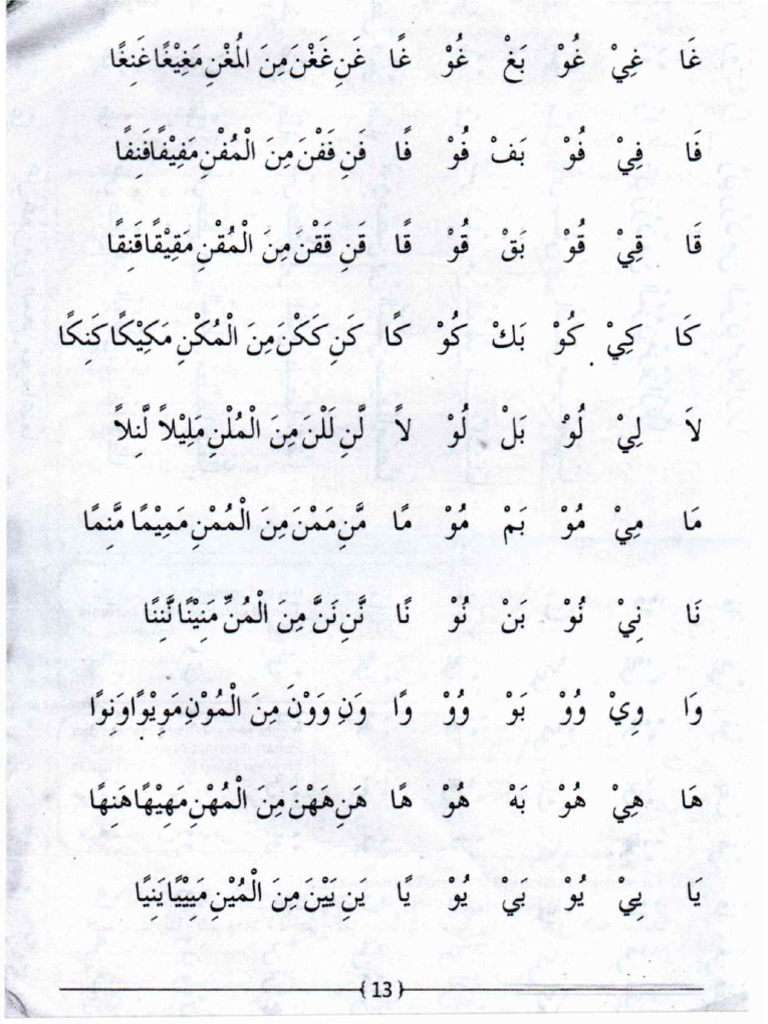 غَا غِيْ غُوْ بَغْ غُوْ غًا غَنِ غَغْنَ مِنَ الْمُغْنِ مَغِيْغًا غَنِغًا
فَا فِيْ فُوْ بَفْ فُوْ فًا فَنِ فَفْنَ مِنَ الْمُفْنِ مَفِيْفًا فَنِفًا
قَا قِيْ قُوْ بَقْ قُوْ قًا قَنِ قَقْنَ مِنَ الْمُقْنِ مَقِيْقًا قَنِقًا
كَا كِيْ كُوْ بَكْ كُوْ كًا كَنِ كَكْنَ مِنَ الْمُكْنِ مَكِيْكًا كَنِكًا
لَا لِيْ لُوْ بَلْ لُوْ لاً لَّنِ لَلْنَ مِنَ الْمُلْنِ مَلِيْلاً لَّنِلاً
مَا مِيْ مُوْ بَمْ مُوْ مًا مَّنِ مَمْنَ مِنَ الْمُمْنِ مَمِيْمًا مَّنِمًا
نَا نِيْ نُوْ بَنْ نُوْ نًا نَّنِ نَنَّ مِنَ الْمُنِّ مَنِيْنًا نَّنِنًا
وَا وِيْ وُوْ بَوْ وُوْ وًا وَنِ وَوْنَ مِنَ الْمُوْنِ مَوِيْوًا وَنِوًا
هَا هِيْ هُوْ بَهْ هُوْ هًا هَنِ هَهْنَ مِنَ الْمُهْنِ مَهِيْهًا هَنِهًا
يَا يِيْ يُوْ بَيْ يُوْ يًا يَنِ يَيْنَ مِنَ الْمُيْنِ مَيِيْيًا يَنِيًا
13